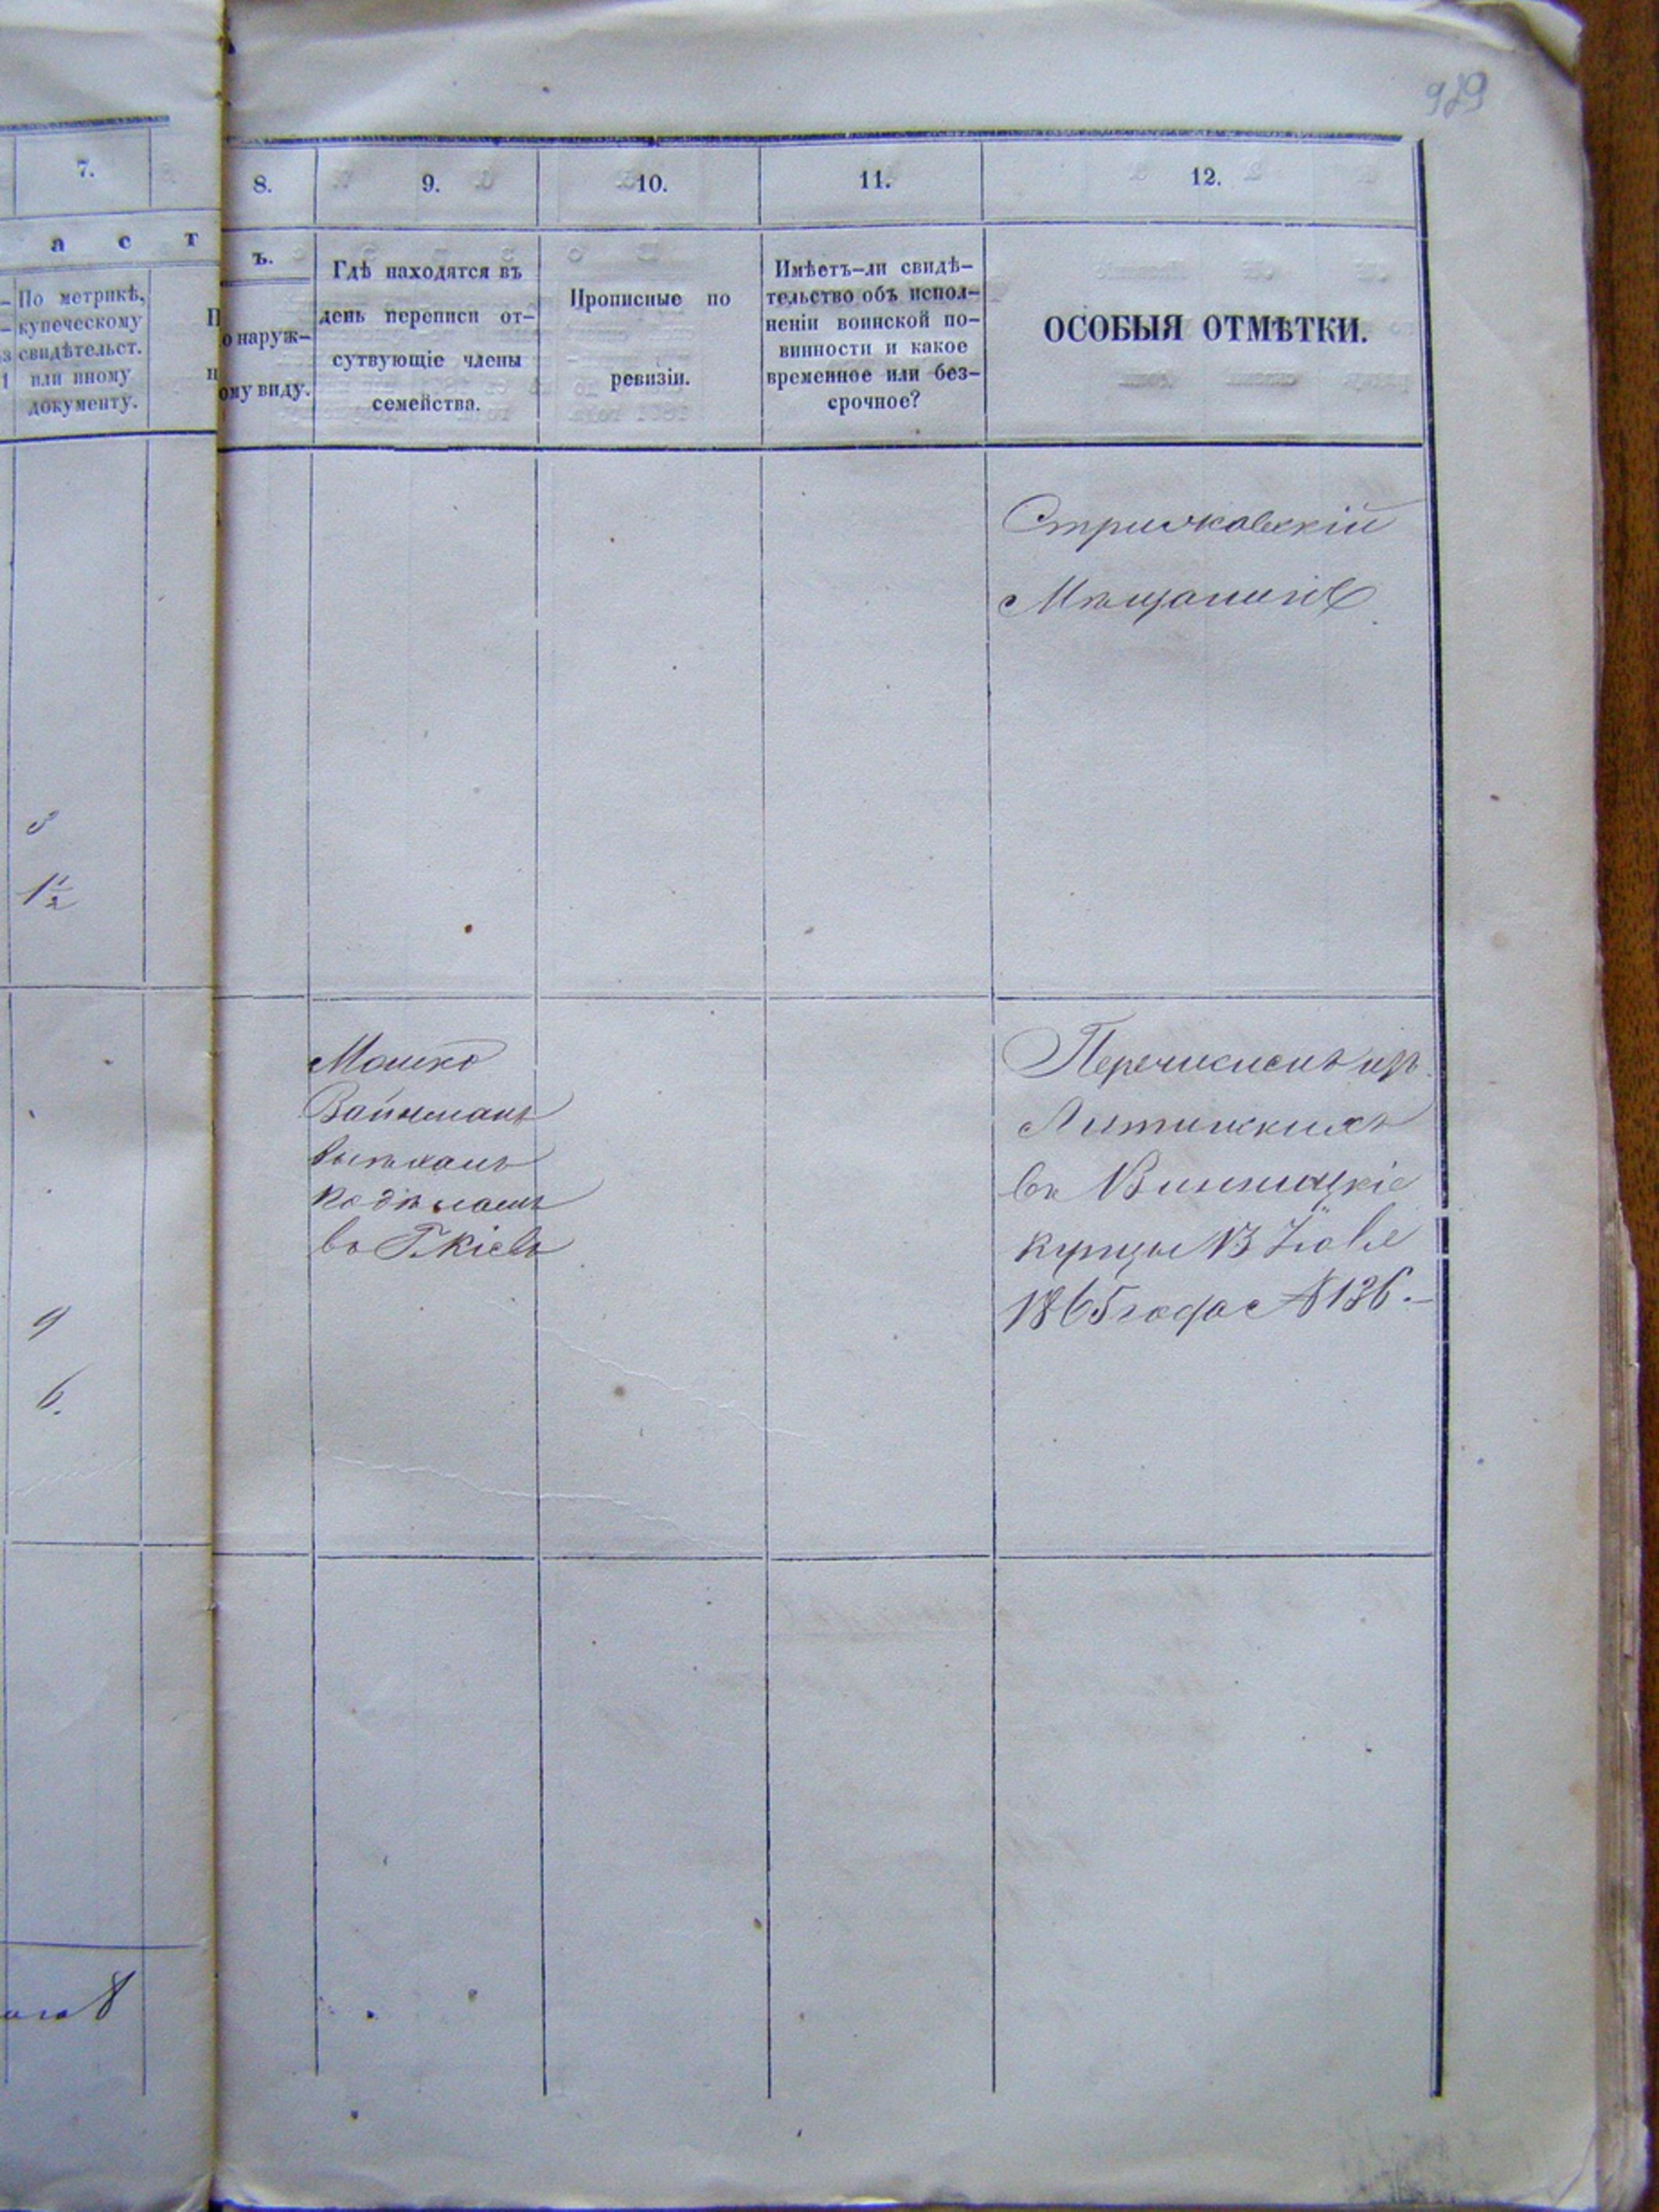 929
7.
а с т
По метрикѣ,
купеческому
свидѣтельст.
или иному
документу.
3
1½
9
6.
8.
9.
10.
11.
12.
ъ.
о наруж-
ому виду.
Гдѣ находятся въ
день переписи от-
сутвующіе члены
семейства.
Прописные по
ревизіи.
Имѣетъ-ли свидѣ-
тельство объ испол-
неніи воинской по-
винности и какое
временное или без-
срочное?
ОСОБЫЯ ОТМѢТКИ.
Стрижавскій
Мѣщанинъ
Мошко
Вайнманъ
выѣхалъ
по дѣламъ
въ Г. Кіевъ
Перечисленъ изъ
Литинскихъ
въ Винницкіе
купцы 13 Іюля
1865 года № 136.—